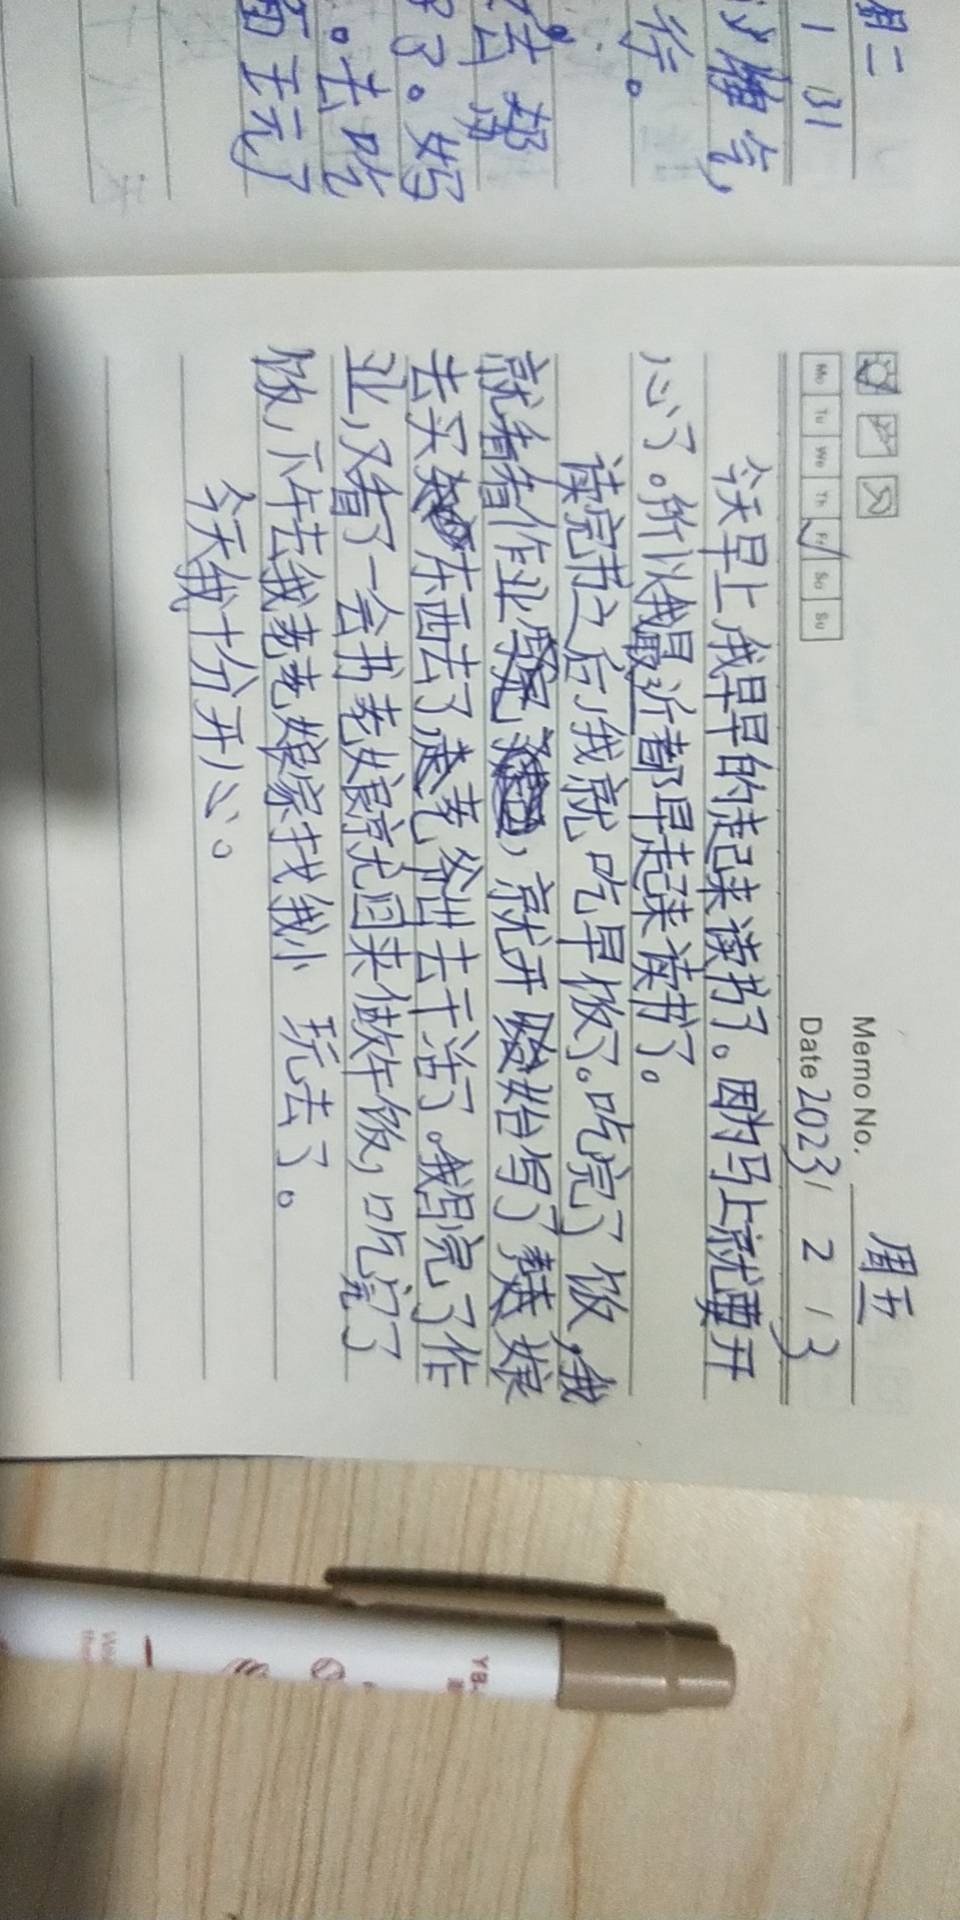 周二
1 31
行。
了。妈
。去吃
面去玩了
Memo No. 周五
Mo Tu We Th Fr Sa Su
Date 2023 / 2 / 3
今天早上,我早早的起来读书了。因为马上就要开
心了。所以我最近都早起来读书了。
读完书之后,我就吃早饭了。吃完了饭,我
就看着作业,就开始写了姥娘
去买东西去了,姥爷出去干活了。我写完了作
业,又看了一会书姥娘就回来做午饭,吃完了
饭,下午去我老老娘家找我小 玩去了。
今天我十分开心。
YB-